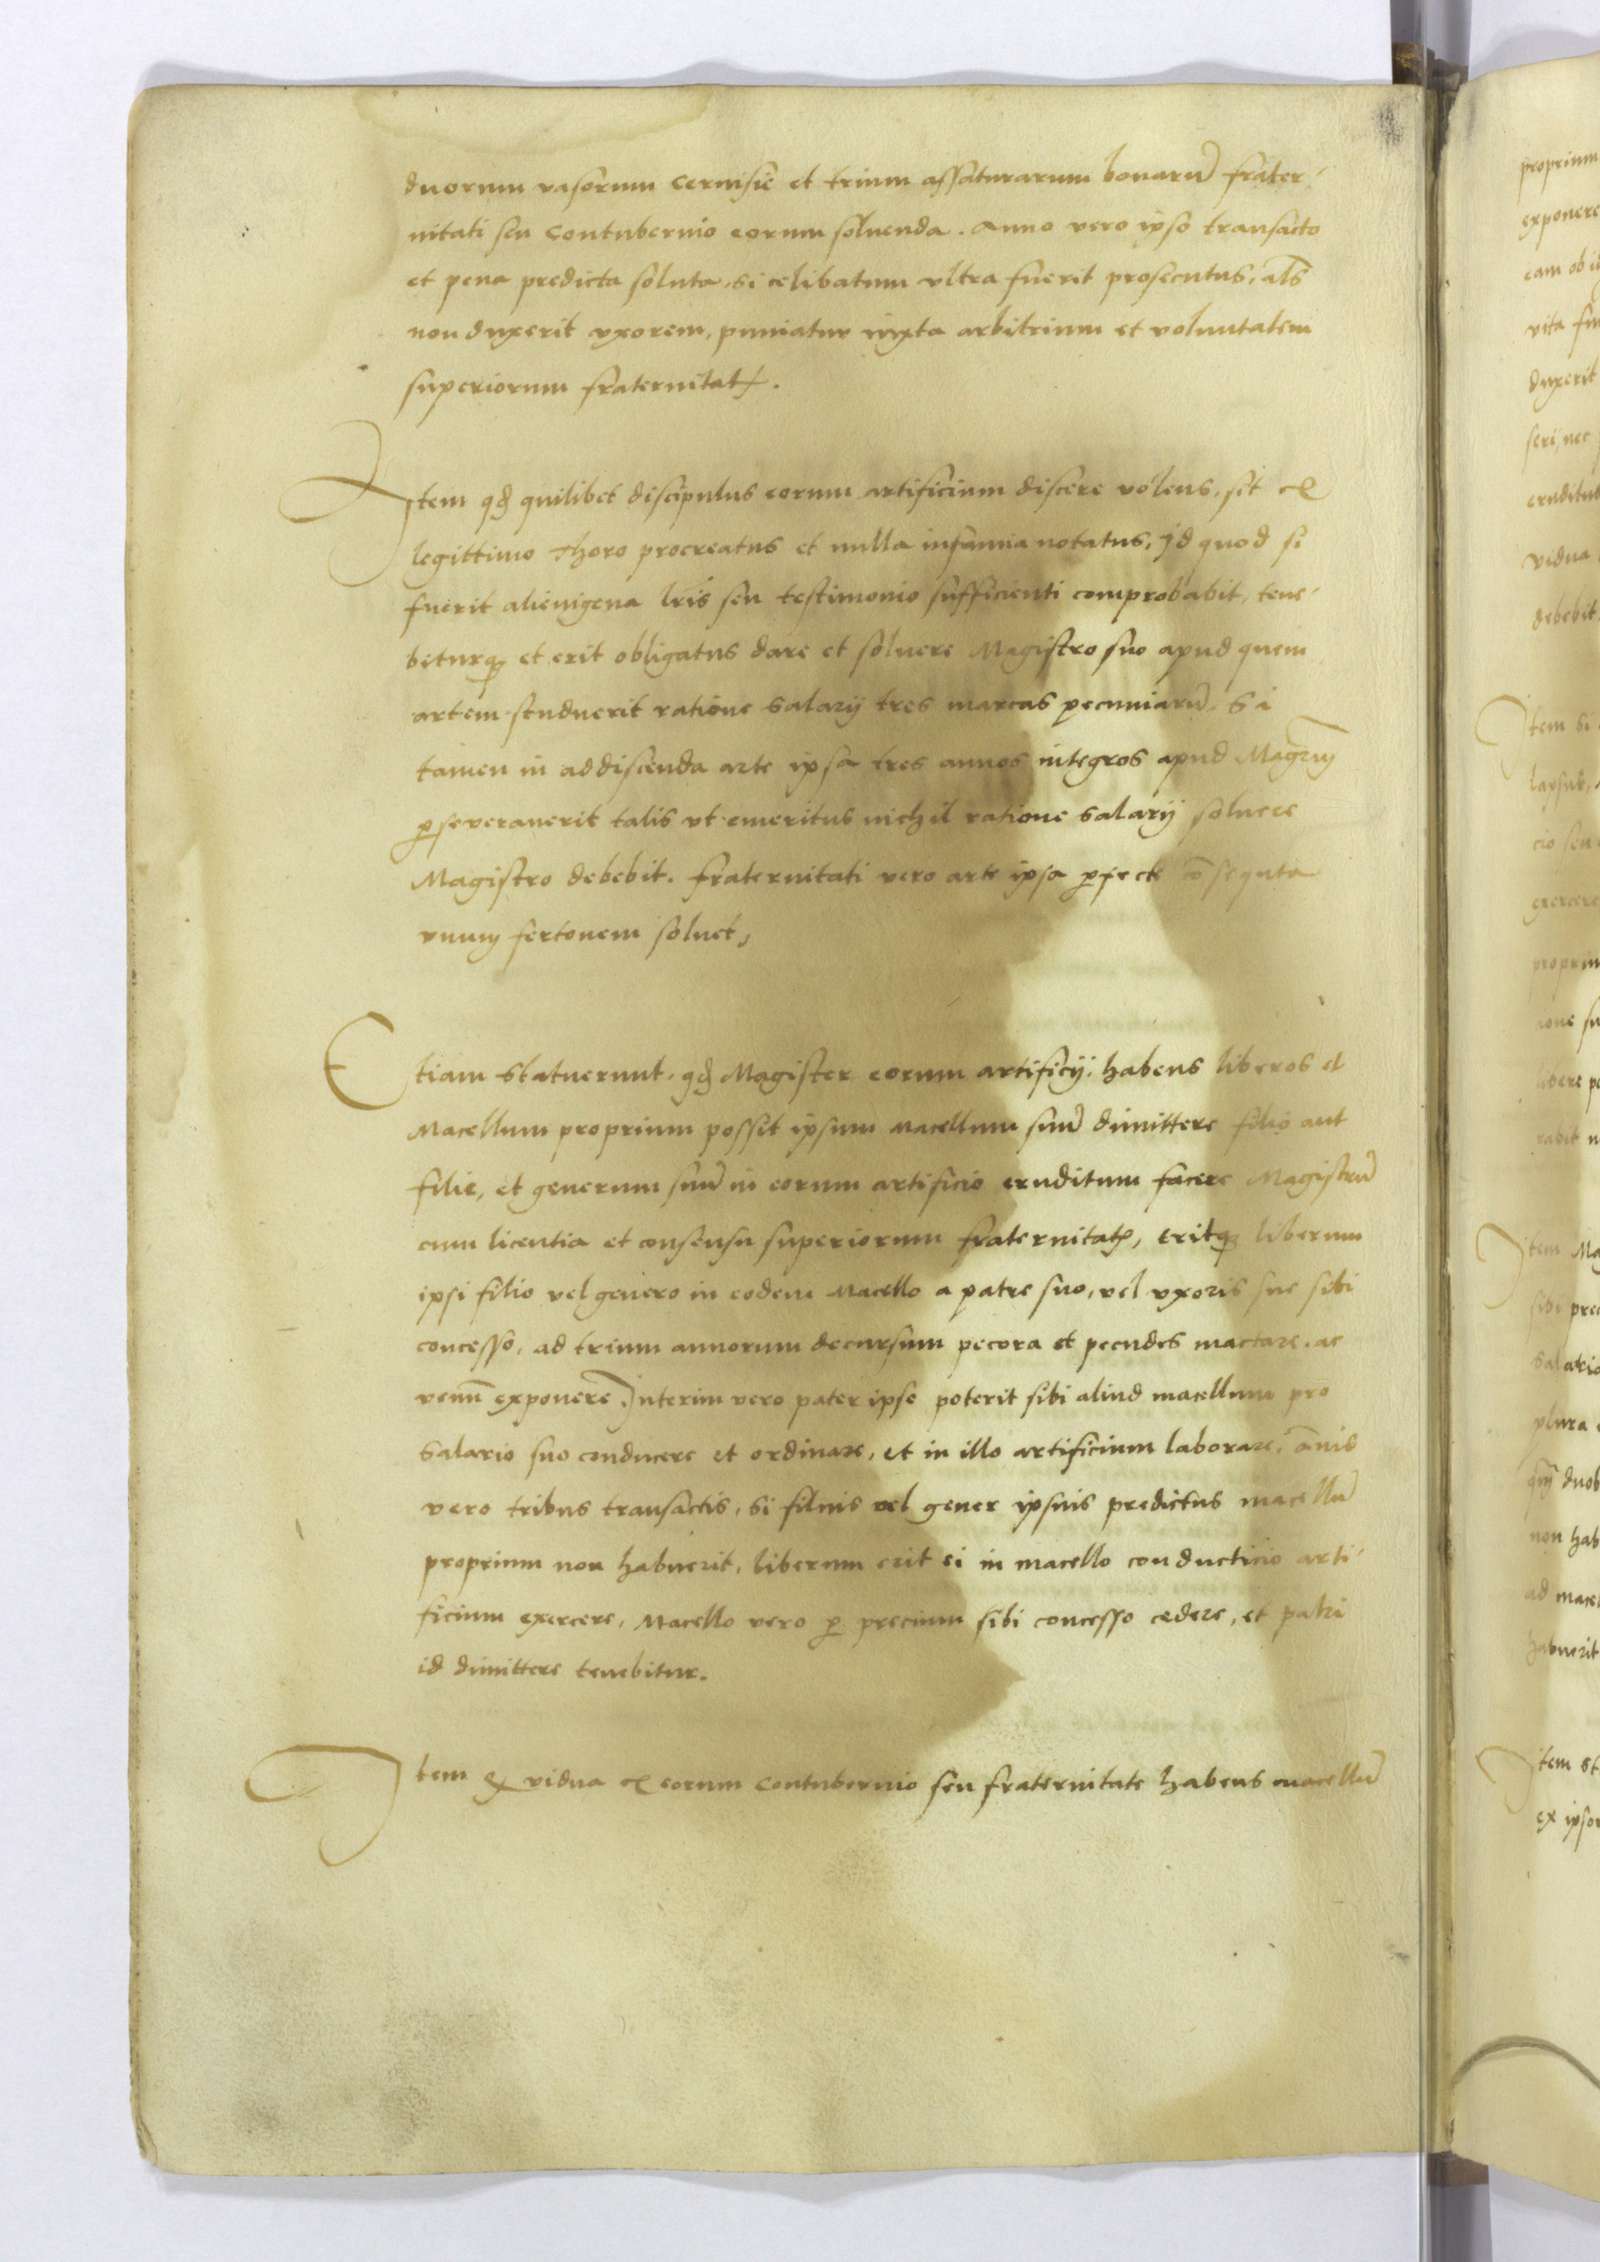 duorum vasorum cervisie et trium assaturarum bonarū frater-
nitati seu Contubernio eorum soluenda. Anno vero ipso transacto
et pena predicta soluta, si celibatum vltra fuerit prosecutus, als̄
non duxerit vxorem, puniatur iuxta arbitrium et voluntatem
superiorum fraternitatꝭ.
Item qđ quilibet discipulus eorum artificium discere volens, sit ex
legittimo thoro procreatus et nulla infamia notatus, Id quod si
fuerit alienigena lr̄is seu testimonio sufficienti comprobabit, tene-
biturqꝫ et erit obligatus dare et soluere Magistro suo apud quem
artem studuerit ratione salarij tres marcas pecuniarū, Si
tamen in addiscenda arte ipsa tres annos integros apud Magr̄um
ꝑseverauerit talis vt emeritus nichil ratione salarij soluere
Magistro debebit. fraternitati vero arte ipsa ꝑfecte cōsequta
vnum fertonem soluet,
Etiam statuerunt, qđ Magister eorum artificij, habens liberos et
Macellum proprium possit ipsum Macellum suū dimittere filio aut
filie, et generum suū in eorum artificio eruditum facere Magistrū
cum licentia et consensu superiorum fraternitatꝭ, eritqꝫ liberum
ipsi filio vel genero in eodem Macello a patre suo, vel vxoris sue sibi
concesso, ad trium annorum decursum pecora et pecudes mactare, ac
venū exponere. Interim vero pater ipse poterit sibi aliud macellum pro
salario suo conducere et ordinare, et in illo artificium laborare, ān̄is
vero tribus transactis, si filius vel gener ipsius predictus macellū
proprium non habuerit, liberum erit ei in macello conducticio arti-
ficium exercere, Macello vero ꝑ precium sibi concesso cedere, et patri
id dimittere tenebitur.
Item qđ vidua ex eorum Contubernio seu fraternitate habens macellū
proprium
exponere
eam ob
vita
duxerit
seri, nec
eruditus
vidua
debebit
Item si
lapsus,
cio seu
exercere
proprium
libere
Item
sibi
salario
plura
duob
non hab
ad macel
habuerit
Item st
ex ipso